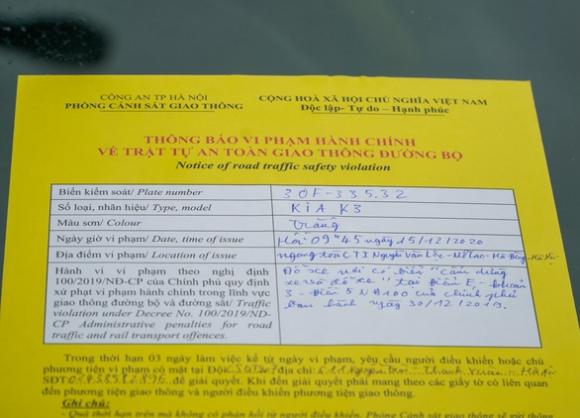 CÔNG AN TP HÀ NỘI
PHÒNG CẢNH SÁT GIAO THÔNG
CỘNG HOÀ XÃ HỘI CHỦ NGHĨA VIỆT NAM
Độc lập- Tự do – Hạnh phúc
THÔNG BÁO VI PHẠM HÀNH CHÍNH
VỀ TRẬT TỰ AN TOÀN GIAO THÔNG ĐƯỜNG BỘ
Notice of road traffic safety violation
Biển kiểm soát/ Plate number 30F-335.32
Số loại, nhãn hiệu/ Type, model KIA K3
Màu sơn/ Colour Trắng
Ngày giờ vi phạm/ Date, time of issue Hồi 09h45 ngày 15/12/2020
Địa điểm vi phạm/ Location of issue Nguyễn Văn Lộc - Mỗ Lao - Hà Đông - Hà Nội
Hành vi vi phạm theo nghị định
100/2019/NĐ-CP của Chính phủ quy định
xử phạt vi phạm hành chính trong lĩnh vực
giao thông đường bộ và đường sắt/ Traffic
violation under Decree No. 100/2019/NĐ-
CP Administrative penalties for road
traffic and rail transport offences.
Đỗ xe nơi có biển "cấm dừng
xe và đỗ xe" tại điểm E - khoản
3 - Điều 5 NĐ100 của chính phủ
ban hành ngày 30/12/2019.
Trong thời hạn 03 ngày làm việc kể từ ngày vi phạm, yêu cầu người điều khiển hoặc chủ
phương tiện vi phạm có mặt tại Đội CSGT số 7 địa chỉ: Nguyễn Trãi - Thanh Xuân - Hà Nội
SĐT: để giải quyết. Khi đến giải quyết phải mang theo các giấy tờ có liên quan
đến phương tiện giao thông và người điều khiển phương tiện giao thông.
Ghi chú:
- Quá thời hạn trên mà không có phản hồi từ người điều khiển, Phòng Cảnh sát giao thông sẽ gửi thông